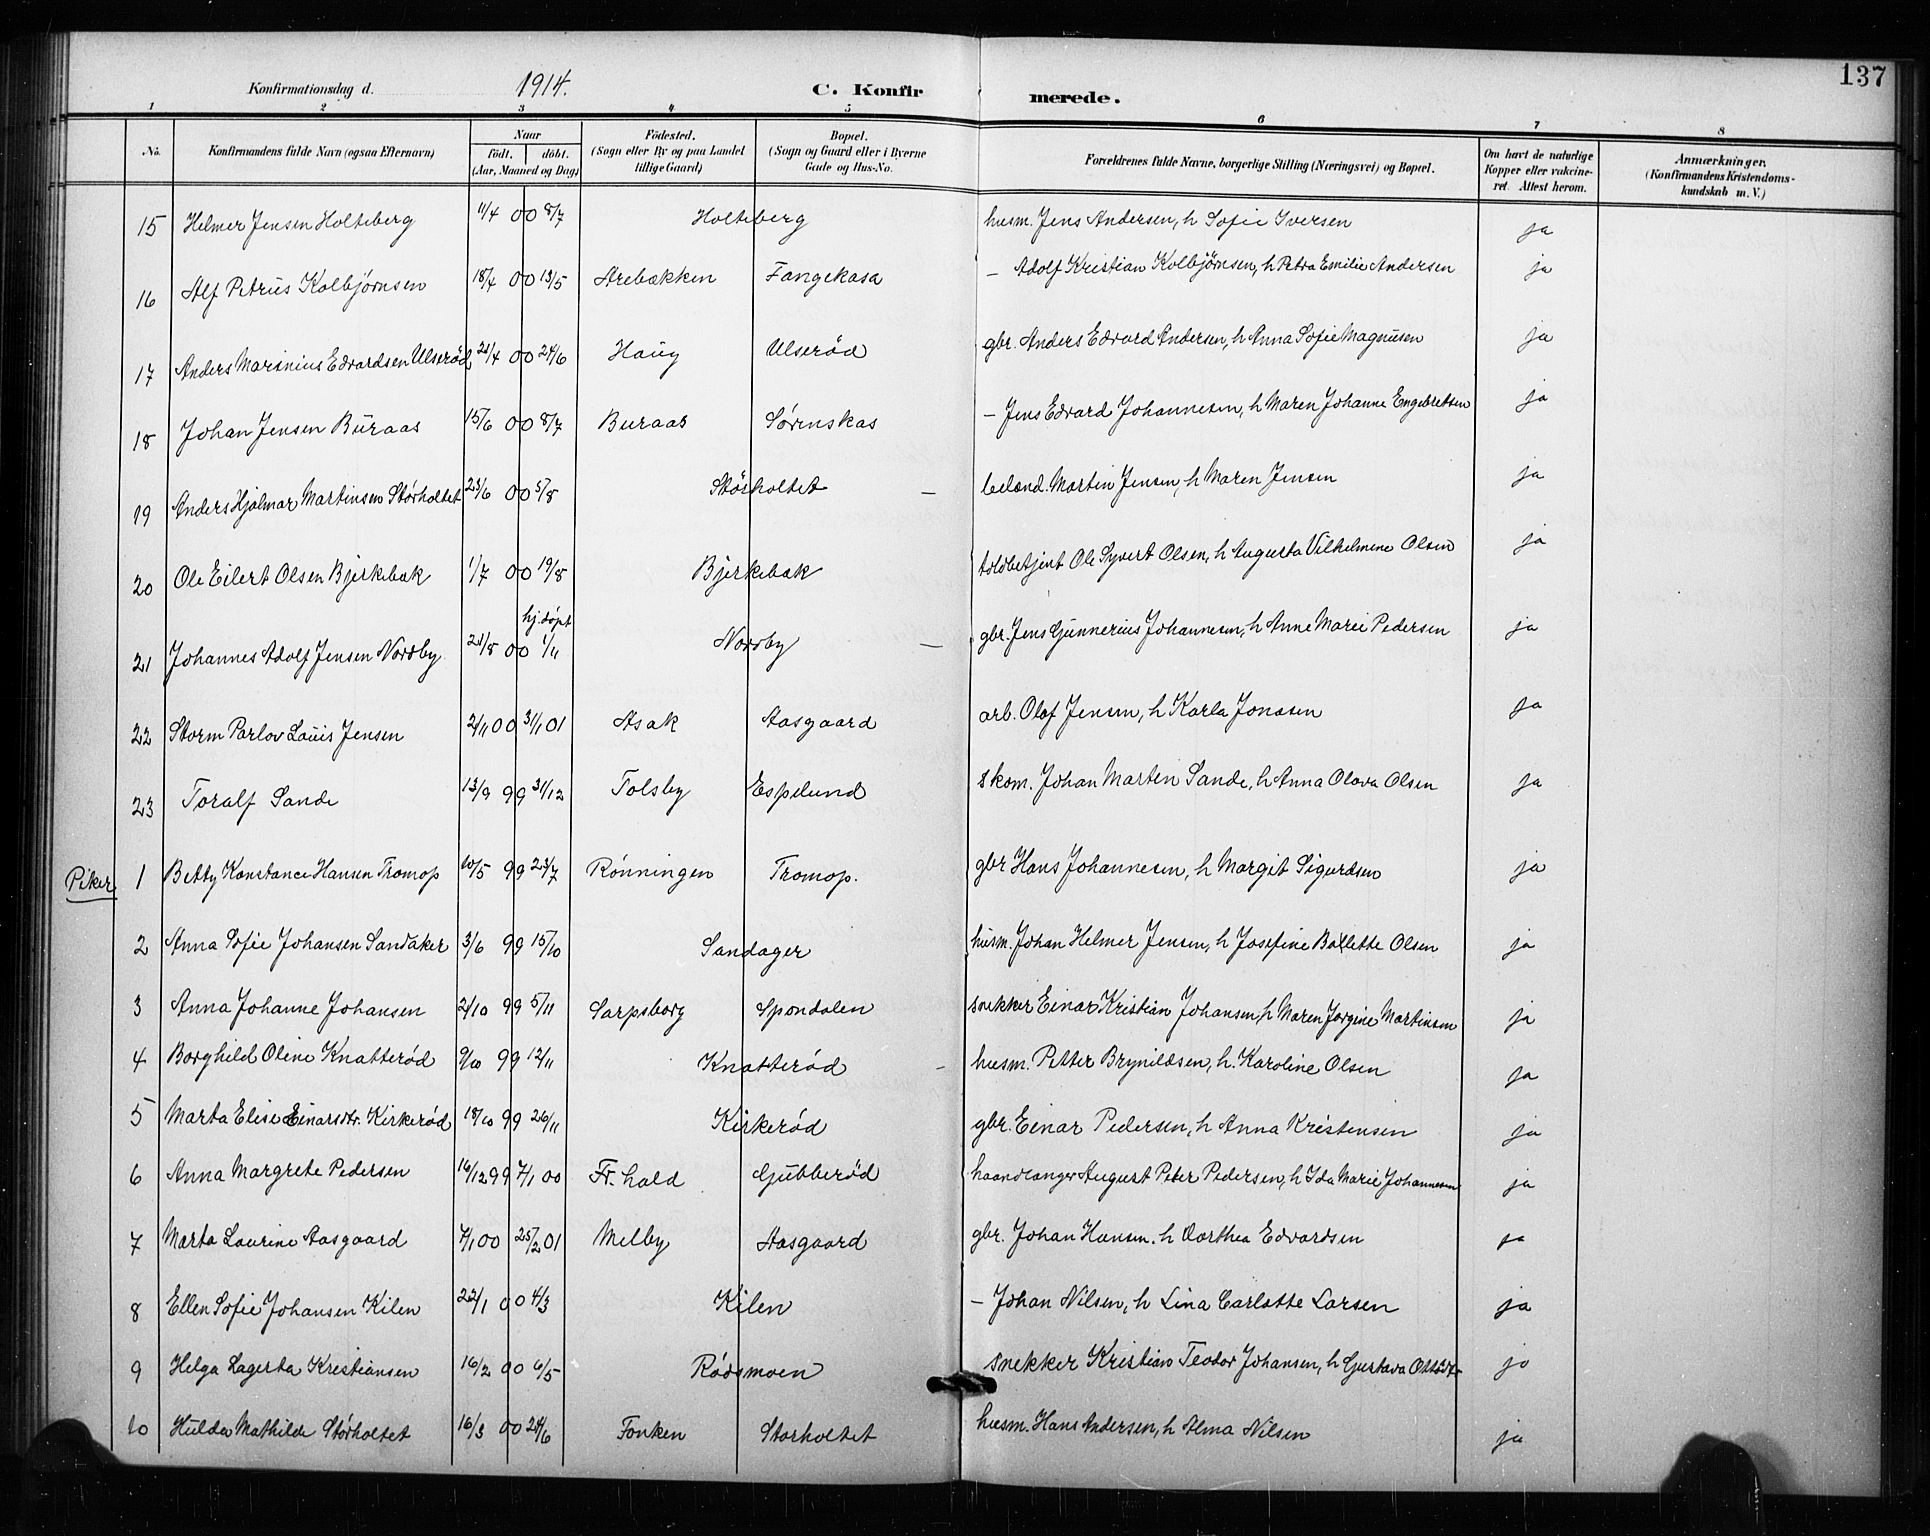 137
Konfirmationsdag d. 1914. C. Konfirmerede.
1 2 3 4 5 6 7 8
No. Konfirmandens fulde Navn (ogsaa Efternavn) Naar født. døbt. (Aar, Maaned og Dag) Fødested. (Sogn eller By og paa Landet tillige Gaard) Bopæl. (Sogn og Gaard eller i Byerne Gade og Hus-No. Forældrenes fulde Navne, borgerlige Stilling (Næringsvei) og Bopæl. Om havt de naturlige Kopper eller vakcineret. Attest herom. Anmærkninger. (Konfirmandens Kristendomskundskab m. V.)
15 Helmer Jensen Holteberg 11/4 00 8/7 Holteberg husm. Jens Andersen, h Sofie Iversen ja
16 Alf Petrus Kolbjørnsen 18/4 00 13/5 Arebakken Fangekasa – Adolf Kristian Kolbjørnsen, h Petra Emilie Andersen ja
17 Anders Marinius Edvardsen Ulserød 21/4 00 24/6 Haug Ulserød gbr. Anders Edvard Andersen, h Anna Sofie Magnusen ja
18 Johan Jensen Buraas 15/6 00 8/7 Buraas Sørenskas – Jens Edvard Johannesen, h Maren Johanne Engebretsen ja
19 Anders Hjalmar Martinsen Størholtet 23/6 00 5/8 Størholtet – leilænd. Martin Jensen, h Maren Jensen ja
20 Ole Eilert Olsen Bjerkebæk 1/7 00 19/8 Bjerkebæk toldbetjent Ole Syvert Olsen, h Augusta Vilhelmine Olsen ja
hj. døpt
21 Johannes Adolf Jensen Nordby 21/8 00 1/11 Nordby – gbr. Jens Gunnerius Johannesen, h Anne Marie Pedersen ja
22 Storm Parlov Louis Jensen 2/11 00 31/1 01 Asak Aasgaard arb. Olof Jensen, h Karla Jonasen ja
23 Toralf Sande 13/9 99 31/12 Tolsby Espelund skom. Johan Martin Sande, h Anna Olava Olsen ja
Piker 1 Betty Konstance Hansen Tromop 10/5 99 23/7 Rønningen Tromop. gbr Hans Johannesen, h Margit Sigurdsen ja
2 Anna Sofie Johansen Sandaker 3/6 99 15/10 Sandager husm. Johan Helmer Jensen, h Josefine Bolette Olsen ja
3 Anna Johanne Johansen 2/10 99 5/11 Sarpsborg Spondalen snekker Einar Kristian Johansen, h Maren Jørgine Martinsen ja
4 Borghild Oline Knatterød 9/10 99 12/11 Knatterød – husm. Petter Brynildsen, h. Karoline Olsen ja
5 Marta Elise Einarsdtr. Kirkerød 18/10 99 26/11 Kirkerød gbr. Einar Pedersen, h Anna Kristensen ja
6 Anna Margrete Pedersen 16/12 99 7/1 00 Fr. hald Gubberød haandlanger August Peter Pedersen, h Ida Marie Johannesen ja
7 Marta Laurine Aasgaard 7/1 00 25/2 01 Melby Aasgaard gbr. Johan Hansen. h Dorthea Edvardsen ja
8 Ellen Sofie Johansen Kilen 22/1 00 4/3 Kilen – Johan Nilsen, h Lina Carlotte Larsen ja
9 Helga Lagerta Kristiansen 16/2 00 6/5 Rødsmoen snekker Kristian Teodor Johansen, h Gustava Ottosdtr ja
10 Hulda Mathilde Størholtet 16/3 00 24/6 Fonken Storholtet husm. Hans Andersen, h Alma Nilsen ja